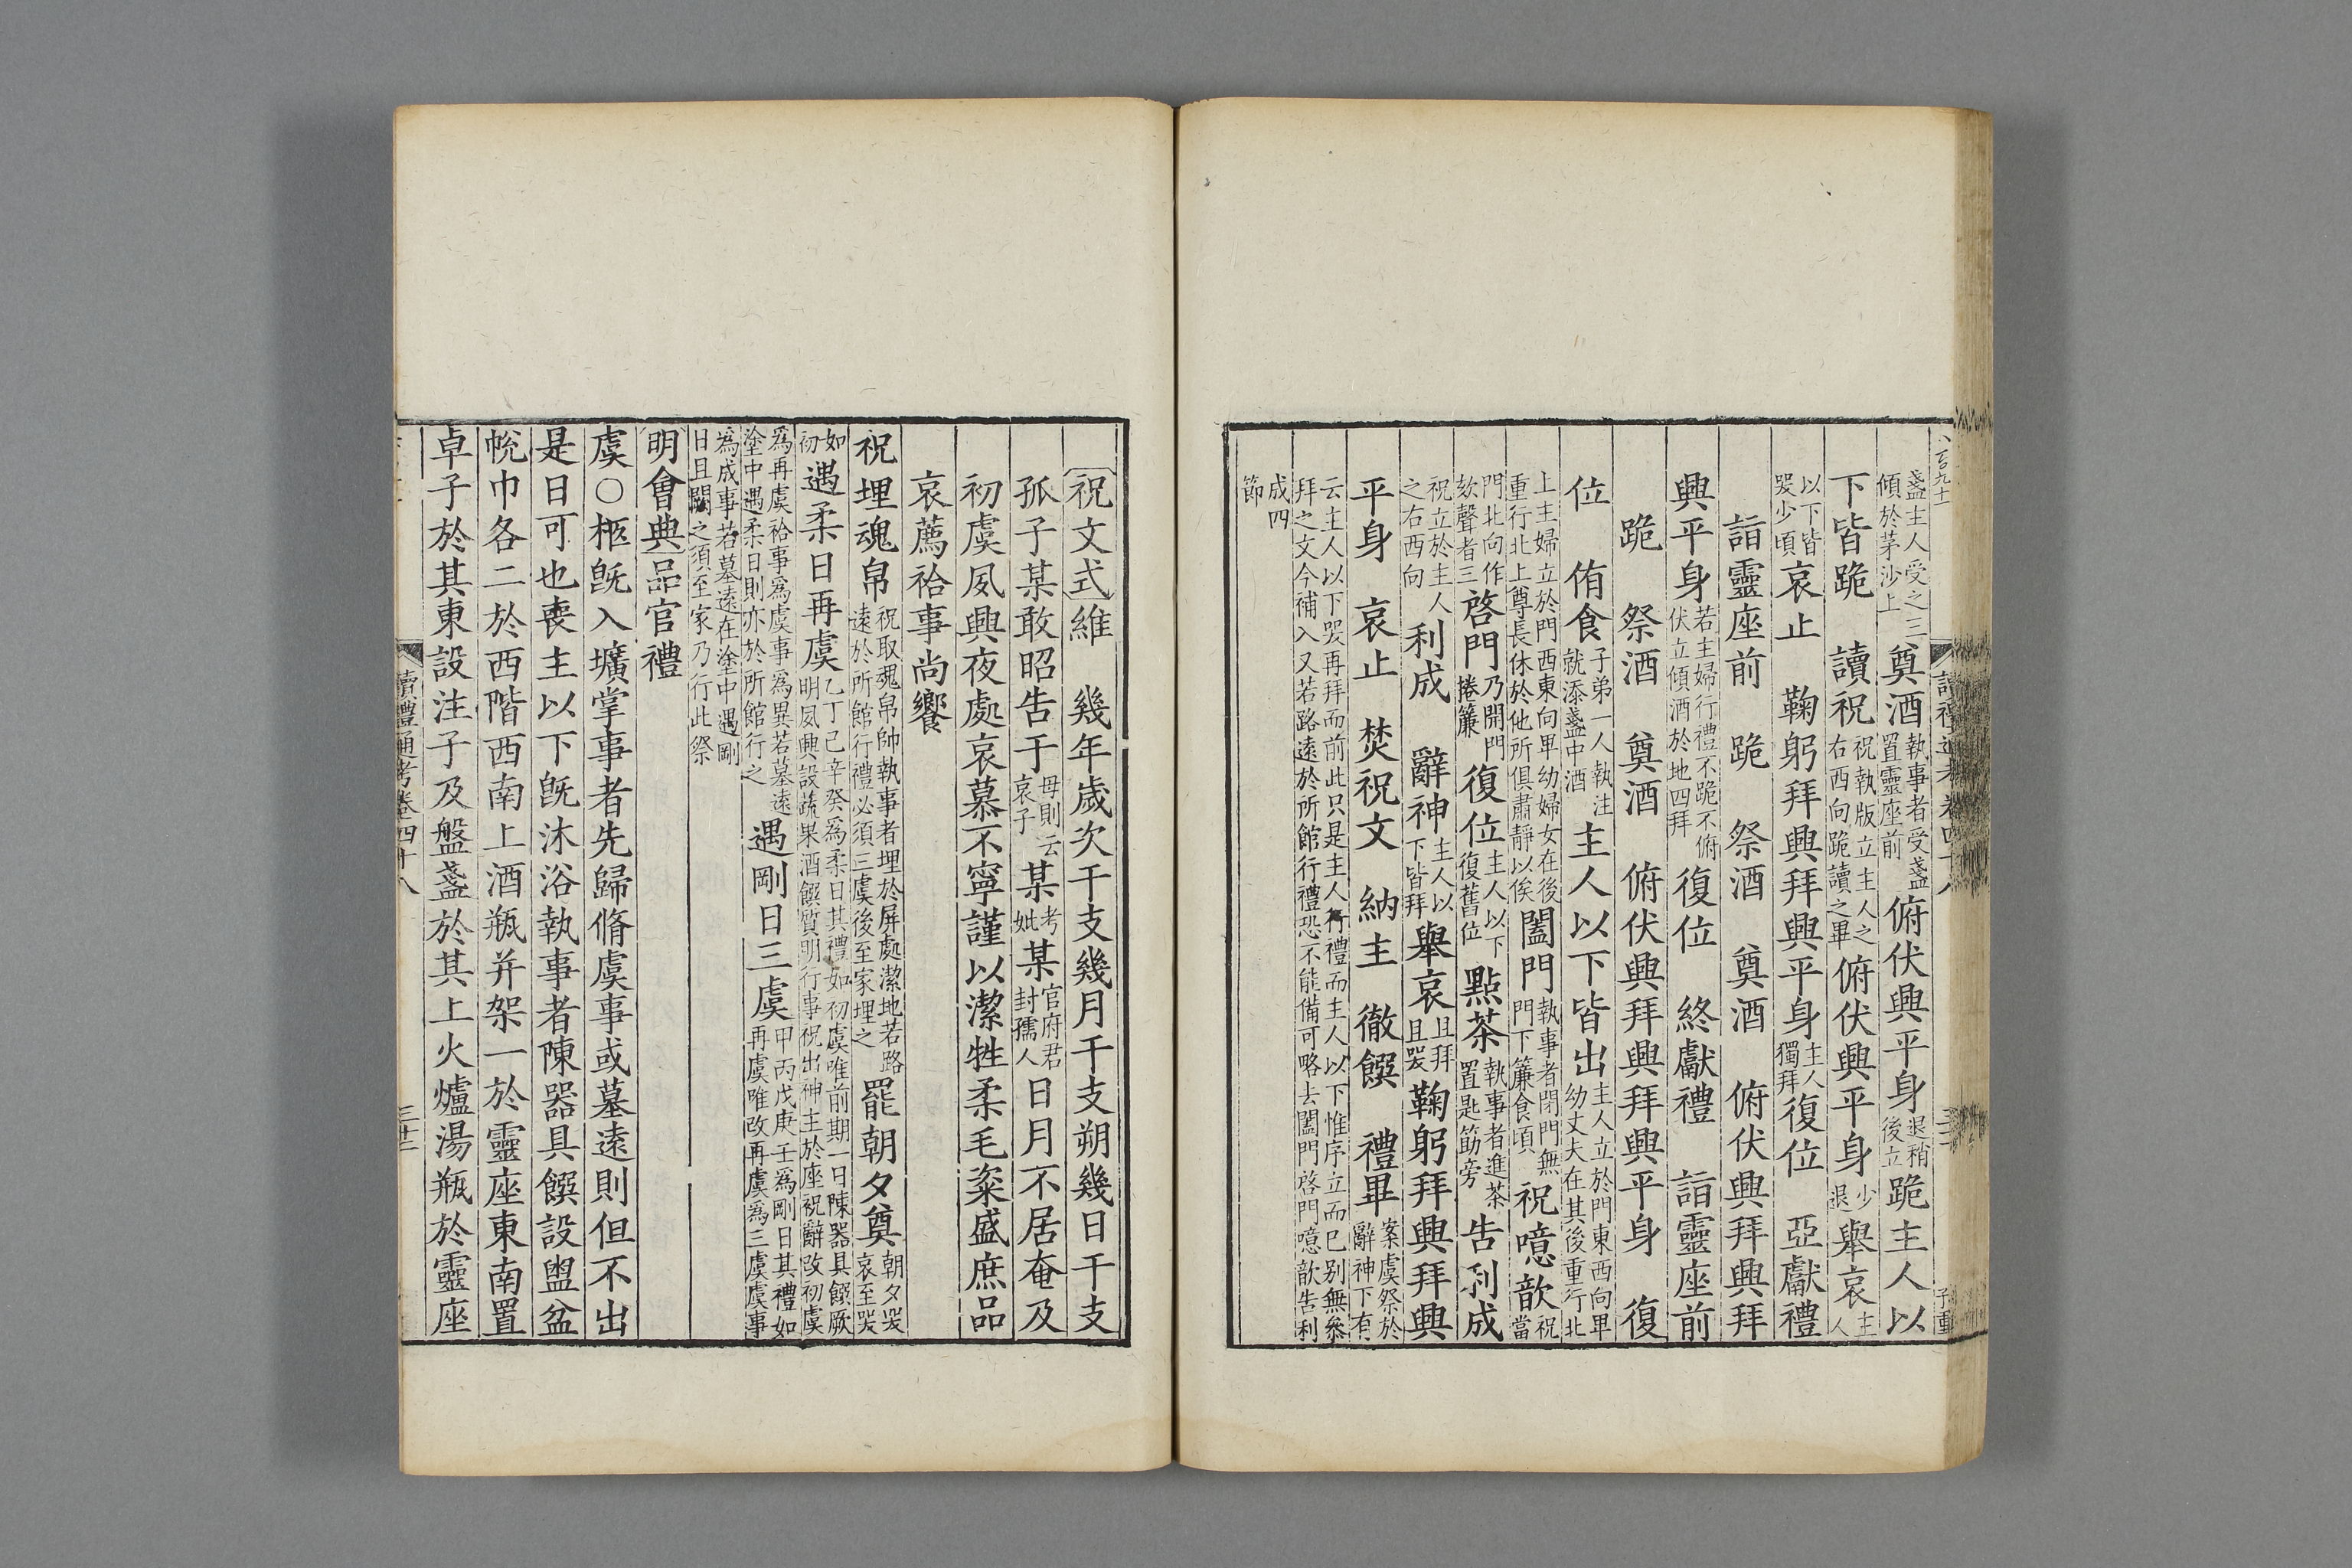 讀禮通考卷四十八
盞主人受之三傾於茅沙上奠酒執事者受盞置靈座前俯伏興平身退稍後立跪主人以
下皆跪　讀祝祝執版立主人之右西向跪讀之畢俯伏興平身少退舉哀主人
以下皆哭少頃哀止　鞠躬拜興拜興平身主人獨拜復位　亞獻禮
詣靈座前　跪　祭酒　奠酒　俯伏興拜興拜
興平身若主婦行禮不跪不俯伏立傾酒於地四拜復位　終獻禮　詣靈座前
跪　祭酒　奠酒　俯伏興拜興拜興平身　復
位　侑食子弟一人執注就添盞中酒主人以下皆出主人立於門東西向畢幼丈夫在其後重行北
上主婦立於門西東向畢幼婦女在後重行北上尊長休於他所俱肅靜以俟闔門執事者閉門無門下簾食頃祝噫歆祝當
門北向作欬聲者三啓門乃開門捲簾復位主人以下復舊位點茶執事者進茶置匙筯旁告利成
祝立於主人之右西向利成　辭神主人以下皆拜舉哀且拜且哭鞠躬拜興拜興
平身　哀止　焚祝文　納主　徹饌　禮畢案虞祭於辭神下有
云主人以下哭再拜而前此只是主人行禮而主人以下惟序立而已别無叅拜之文今補入又若路遠於所館行禮恐不能備可略去闔門啓門噫歆告利
成四節
祝文式維　幾年歲次干支幾月干支朔幾日干支
孤子某敢昭告于母則云哀子某考妣某官府君封孺人日月不居奄及
初虞夙興夜處哀慕不寧謹以潔牲柔毛粢盛庶品
哀薦祫事尚饗
祝埋魂帛祝取魂帛帥執事者埋於屏處潔地若路遠於所館行禮必須三虞後至家埋之罷朝夕奠朝夕哭哀至哭
如初遇柔日再虞乙丁己辛癸為柔日其禮如初虞唯前期一日陳器具饌厥明夙興設蔬果酒饌質明行事祝出神主於座祝辭改初虞
為再虞祫事為虞事為異若墓遠塗中遇柔日則亦於所館行之遇剛日三虞甲丙戊庚壬為剛日其禮如再虞唯改再虞為三虞虞事
為成事若墓遠在塗中遇剛日且闕之須至家乃行此祭
明會典品官禮
虞○柩旣入壙掌事者先歸脩虞事或墓遠則但不出
是日可也喪主以下旣沐浴執事者陳器具饌設盥盆
帨巾各二於西階西南上酒瓶并架一於靈座東南置
卓子於其東設注子及盤盞於其上火爐湯瓶於靈座
讀禮通考卷四十八